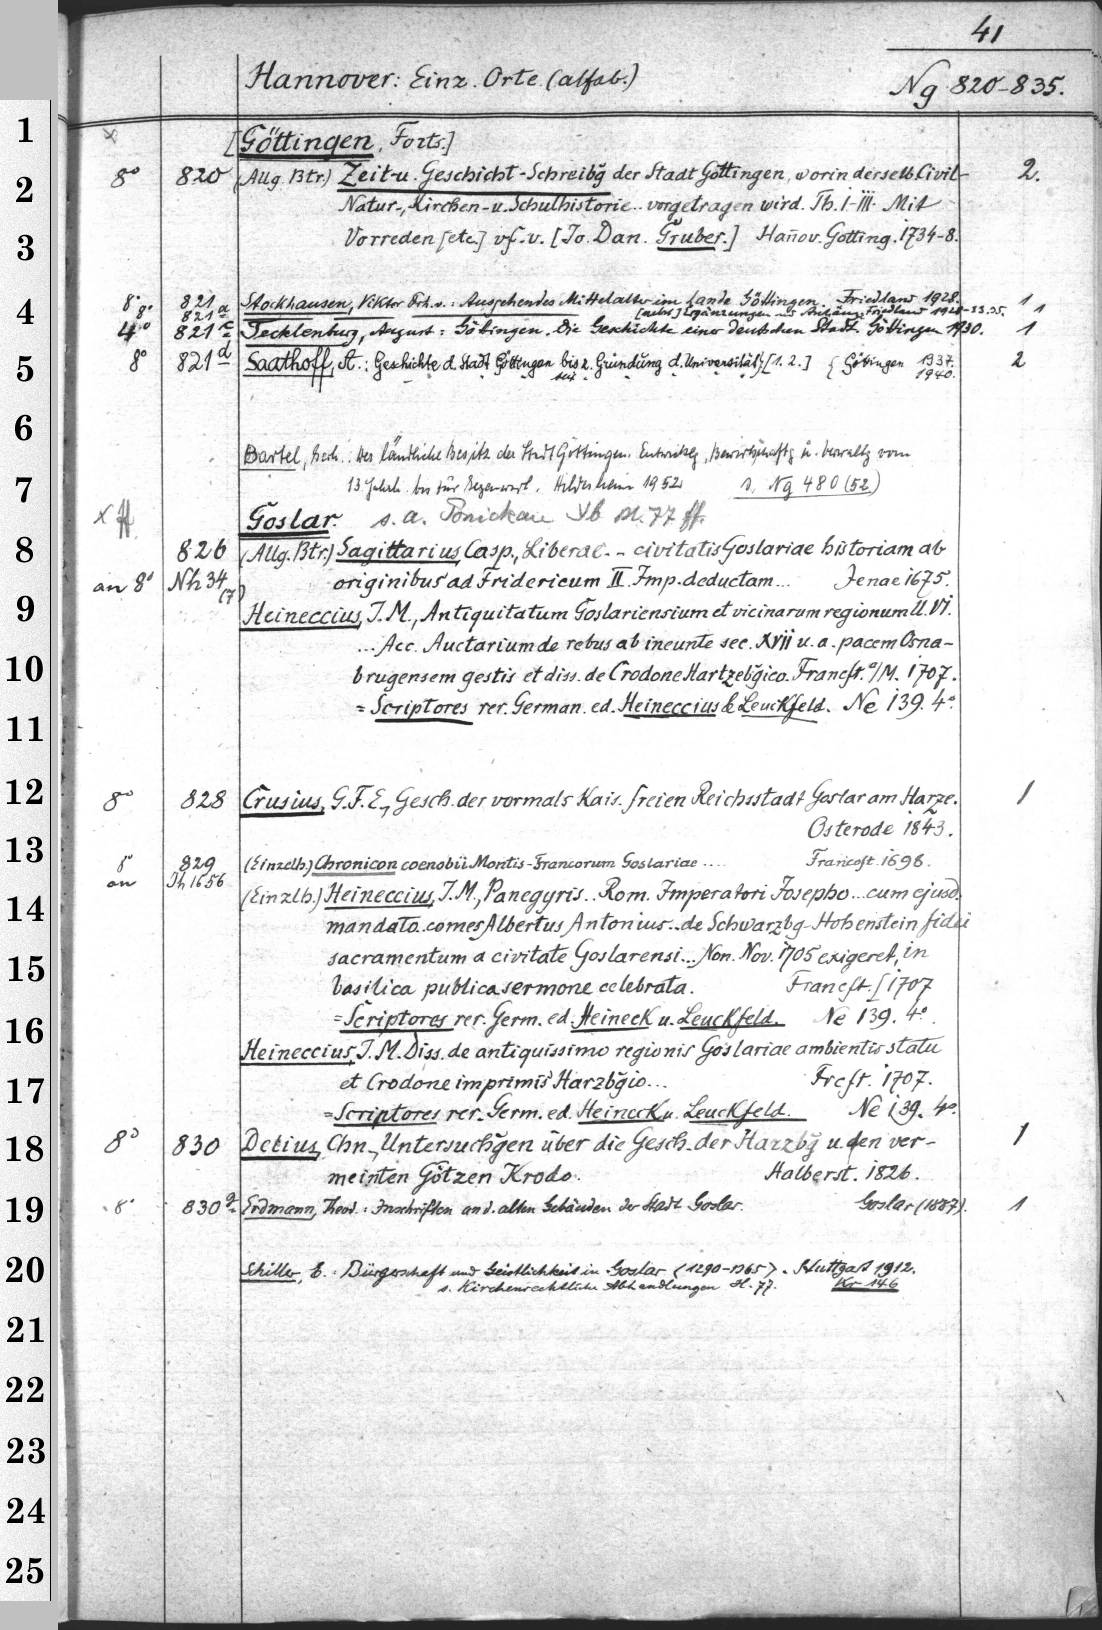 41
Hannover: Einz. Orte (alfab.) Ng 820-835.
1
[Göttingen, Forts.]
2
8° 820 (Allg. Btr.) Zeit- u. Geschicht-Schreibg̃ der Stadt Göttingen, worin derselb. Civil- 2.
Natur-, Kirchen- u. Schulhistorie.. vorgetragen wird. Th. I-III. Mit
3
Vorreden [etc.] vf. v. [Jo. Dan. Gruber.] Hañov. Götting. 1734-8.
4
8° 821 Stockhausen, Viktor v.: Ausgehendes Mittelalter im Lande Göttingen. Friedland 1928. 1
8° 821a [nebst] Ergänzungen Friedland 1928-33.35. 1
4° 821c Tecklenburg, August: Göttingen. Die Geschichte einer deutschen Stadt. Göttingen 1930. 1
5
8° 821d Saathoff, A.: Geschichte d. Stadt Göttingen bis z. Gründung d. Universität [1. 2.] { Göttingen 1937. 2
seit 1940.
6
Bartel, : Der ländliche Besitz der Stadt Göttingen. Entwicklg, Bewirtschaftg u. Verwaltg vom
7
13. Jahrh. bis zur Gegenwart. Hildesheim 1952 s. Ng 480 (52)
x
Goslar. s. a. Ponickau Yb 77 ff.
8
826 (Allg. Btr.) Sagittarius, Casp., Liberae.. civitatis Goslariae historiam ab
an 8° Nh 34 (7) originibus ad Fridericum II. Imp. deductam... Jenae 1675.
9
Heineccius, J. M., Antiquitatum Goslariensium et vicinarum regionum ll. VI.
... Acc. Auctarium de rebus ab ineunte sec. XVII u. a. pacem Osna-
10
brugensem gestis et diss. de Crodone Hartzebg̃ico. Francft. a/M. 1707.
= Scriptores rer. German. ed. Heineccius & Leuckfeld. Ne 139. 4°.
11
12
8° 828 Crusius, G. F. E., Gesch. der vormals Kais. freien Reichsstadt Goslar am Harze. 1
Osterode 1843.
13
8° 829 (Einzelh.) Chronicon coenobii Montis-Francorum Goslariae .... Francoft. 1698.
an Ih 1656
14
(Einzlh.) Heineccius, J. M., Panegyris.. Rom. Imperatori Josepho... cum ejusd.
mandato.. comes Albertus Antonius.. de Schwarzbg-Hohenstein fidei
15
sacramentum a civitate Goslarensi... Non. Nov. 1705 exigeret, in
basilica publica sermone celebrata. Francft. [1707
16
= Scriptores rer. Germ. ed. Heineck u. Leuckfeld. Ne 139. 4°.
Heineccius, J. M. Diss. de antiquissimo regionis Goslariae ambientis statu
17
et Crodone imprimis Harzbg̃io... Frcft. 1707.
= Scriptores rer. Germ. ed. Heineck u. Leuckfeld. Ne 139. 4°.
18
8° 830 Delius, Chn., Untersuchg̃en über die Gesch. der Harzbg̃ u. den ver- 1
meinten Götzen Krodo. Halberst. 1826.
19
8° 830a Erdmann, Theod.: Inschriften an d. alten Gebäuden der Stadt Goslar. Goslar (1887). 1
20
Schiller, E.: Bürgerschaft und Geistlichkeit in Goslar (1290-1365). Stuttgart 1912.
s. Kirchenrechtliche Abhandlungen H. 77. Kr 146
21
22
23
24
25